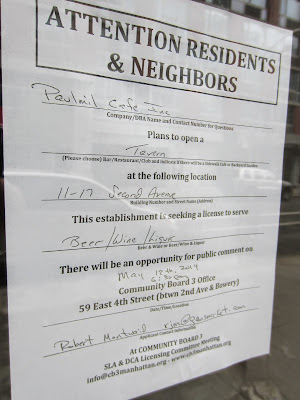 ATTENTION RESIDENTS
& NEIGHBORS
Paulmil Cafe Inc
Company/DBA Name and Contact Number for Questions
Plans to open a
Tavern
(Please choose) Bar/Restaurant/Club and indicate if there will be a Sidewalk Cafe or Backyard Garden
at the following location
11-17 Second Avenue
Building Number and Street Name (Address)
This establishment is seeking a license to serve
Beer/Wine/Liquor
Beer & Wine or Beer/Wine & Liquor
There will be an opportunity for public comment on
May 13th, 2014
6:30 pm
Community Board 3 Office
59 East 4th Street (btwn 2nd Ave & Bowery)
Date/Time/Location
Robert
Applicant Contact Information
At COMMUNITY BOARD 3
SLA & DCA Licensing Committee Meeting
info@cb3manhattan.org - www.cb3manhattan.org